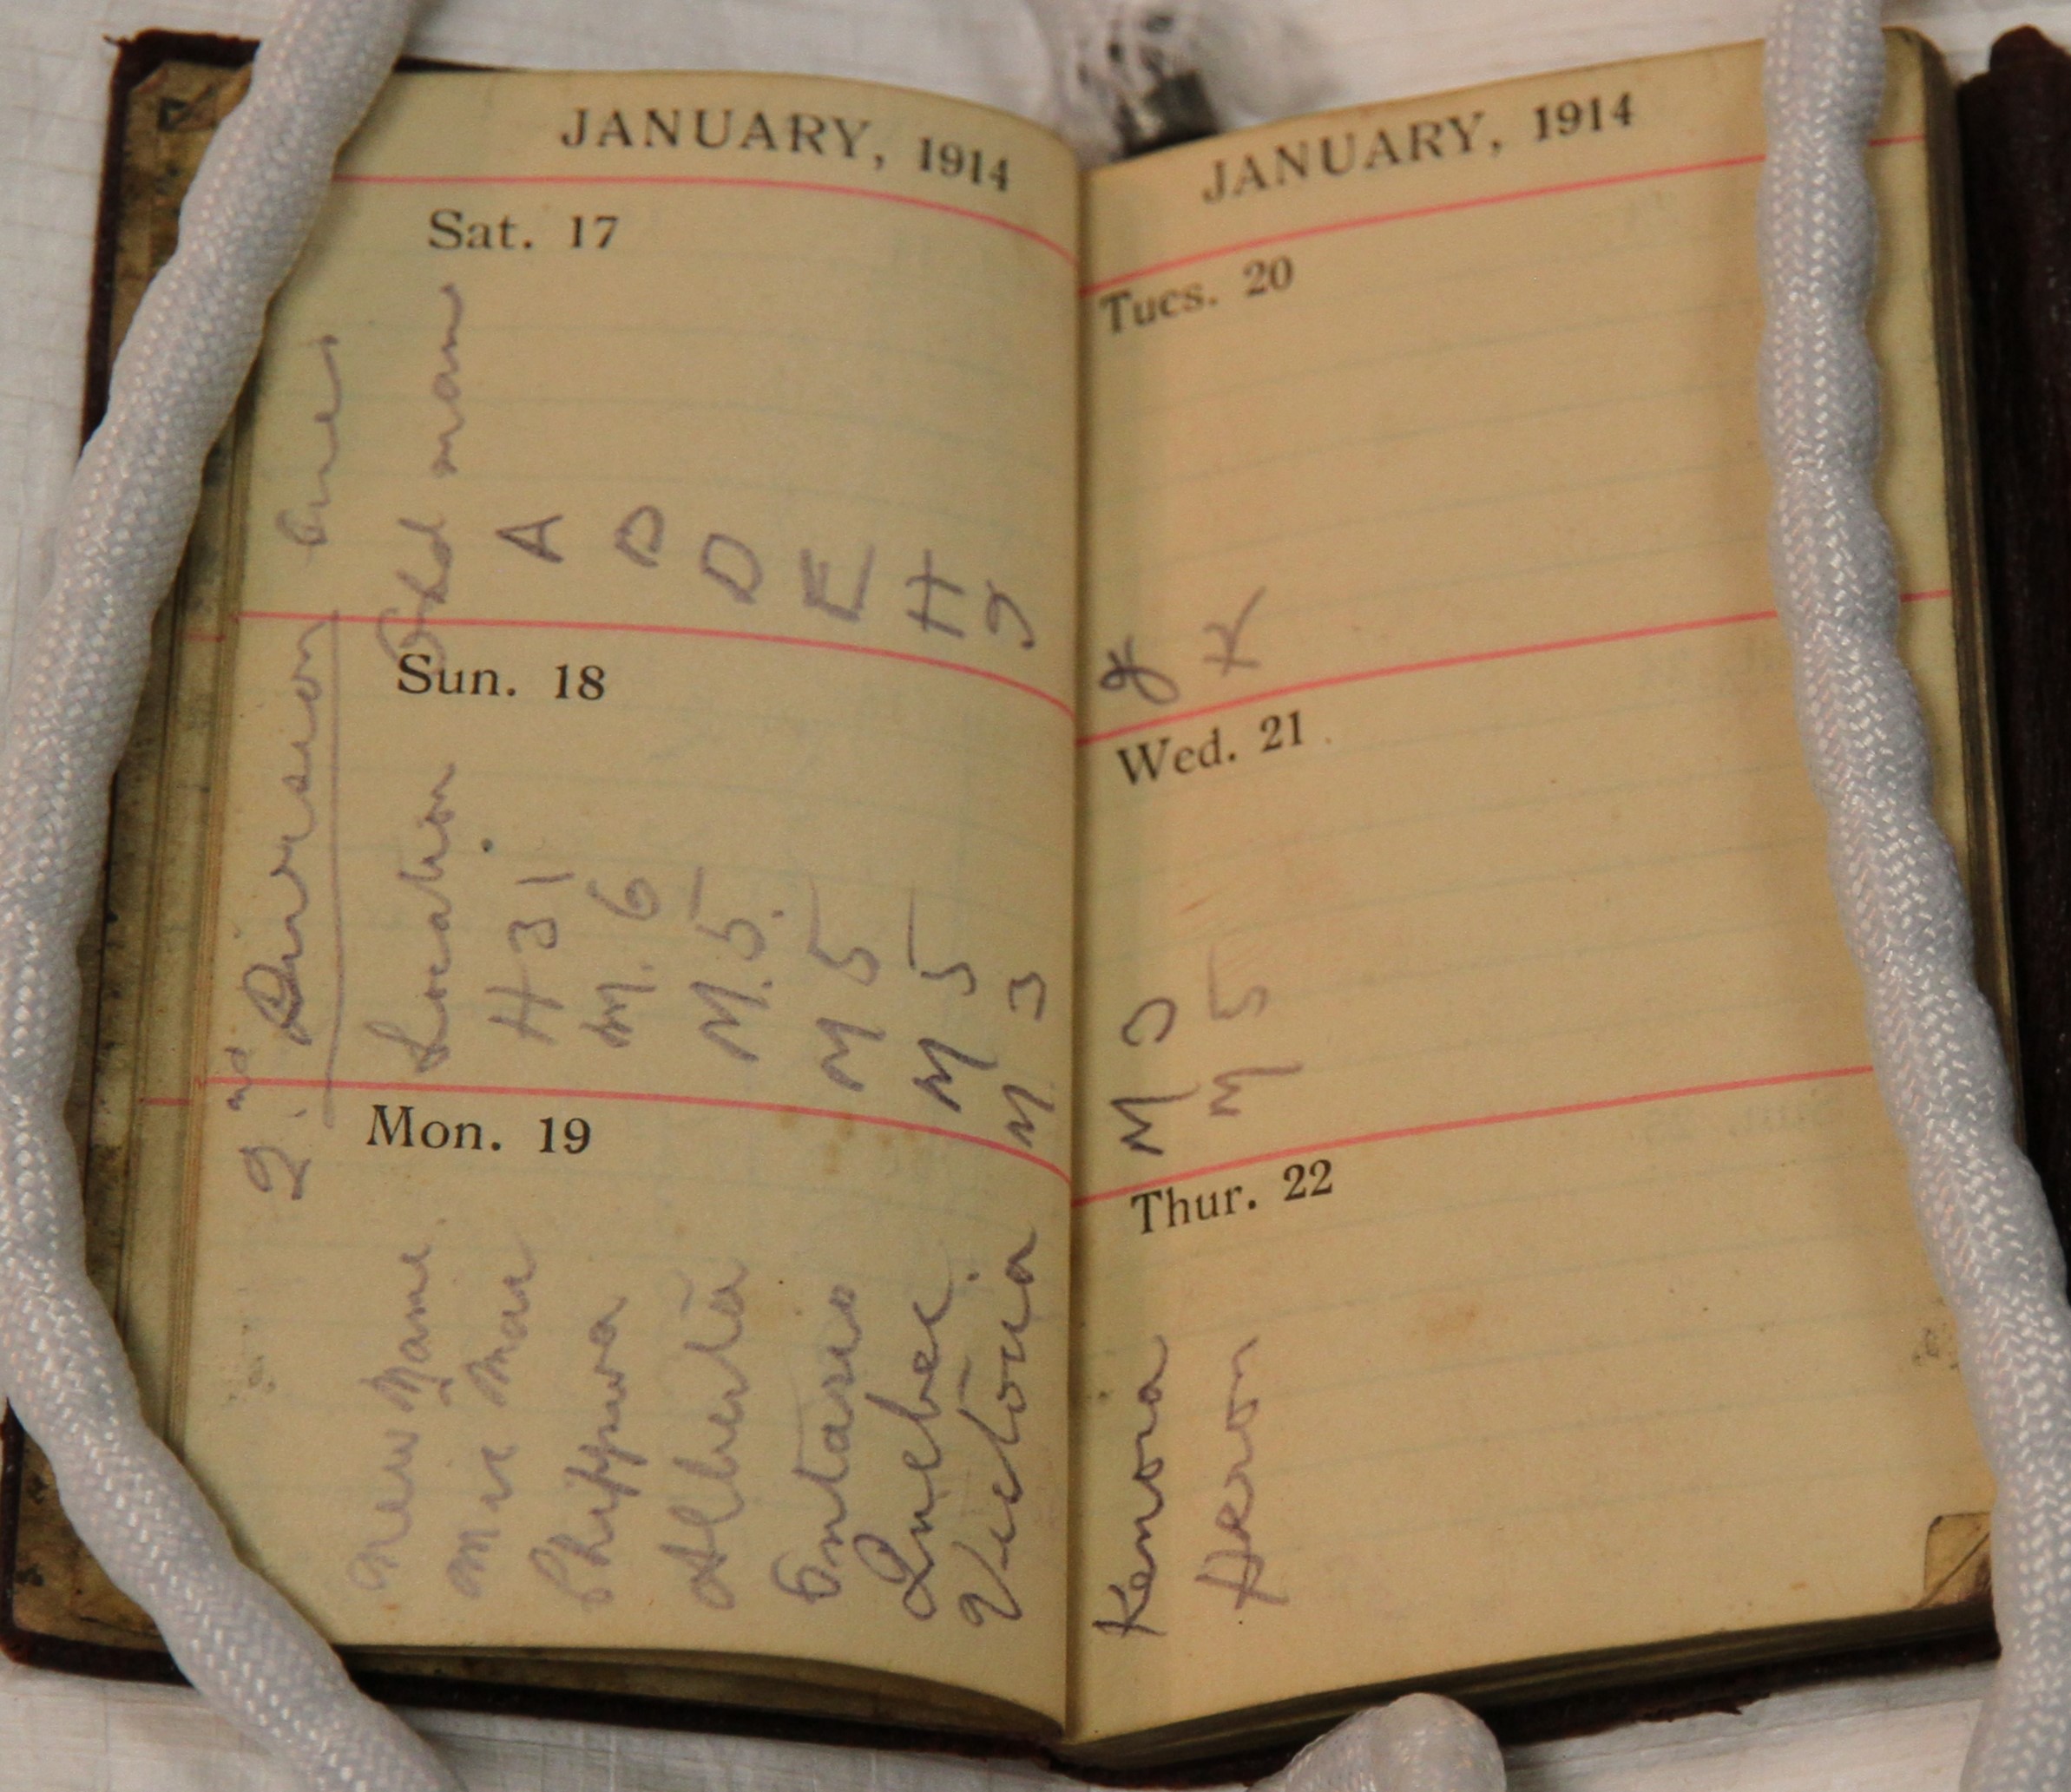 JANUARY, 1914
Sat. 17
Sun. 18
Mon. 19
2.nd Division
New Name Location Old name
Mic Mac H 31 A
Chippwa M. 6
Alberta M. 5. D
Ontario M 5 E
Quebec. M 5 H
Victoria M 3 J
JANUARY, 1914
Tues. 20
Wed. 21
Thur. 22
Kenora M
Heron M 5 K